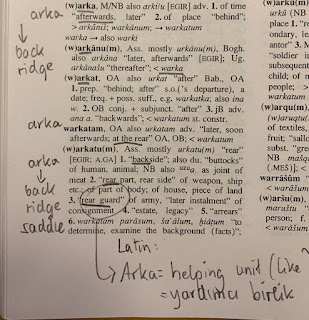 (w)arka, M/NB also arki/u [EGIR] adv. 1. of time
"afterwards, later" 2. of place "behind";
> arkāniš; warkānum; → warkatum
warka → also warki
(w)arkānu(m), Ass. mostly urkānu(m), Bogh.
also arkāna "later, afterwards" [EGIR]; Ug.
arkānašu "thereafter"; < warka
(w)arkat, OA also urkat "after" Bab., OA
1. prep. "behind; after" s.o.('s departure), a
date; freq. + poss. suff., e.g. warkata; also ina
w. 2. OB conj. + subjunct. "after" 3. jB adv.
ana a. "backwards"; < warkatum st. constr.
warkatam, OA also urkatam adv. "later, soon
afterwards; at the rear" OA, OB; < warkatum
(w)arkatu(m), Ass. mostly urkatu(m) "rear"
[EGIR; A.GA] 1. "backside"; also du. "buttocks"
of human, animal; NB also as joint
of meat 2. "rear part, rear side" of weapon, ship
etc., of part of body; of house, piece of land
3. "rear guard" of army, "later instalment" of
consignment 4. "estate, legacy" 5. "arrears"
6. warkatam parāsum, ša'ālum, ḫiāṭum "to
determine, examine the background (facts)";
arka
back
ridge
arka
arka
back
ridge
saddle
Latin:
Arka = helping unit (like
= yardımcı birlik
(w)arkû
urkû (NB
place 1. "r
ondary, le
antor" 3. M
"soldier i
subsequent
child; of m
people; o
<
(w)arqu(m)
of textiles,
fruit; "sall
subst. "gre
NB
(.MEŠ)]; <
warrāšûm
< warāšum
(w)aršu(m),
maruštu
person; f.
< warāšum